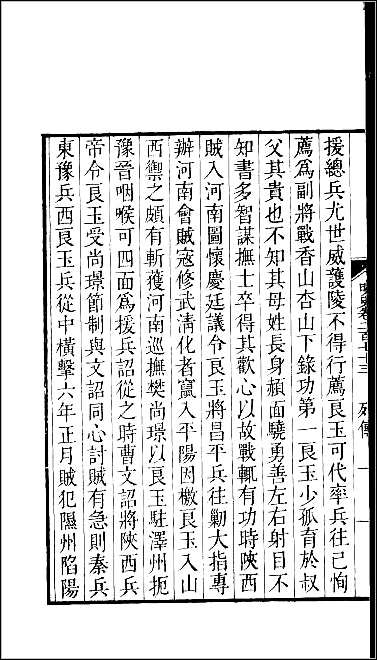 援總兵尤世威護陵不得行薦良玉可代率兵往已恂
薦爲副將戰香山杏山下錄功第一良玉少孤育於叔
父其貴也不知其母姓長身赬面驍勇善左右射目不
知書多智謀撫士卒得其歡心以故戰輒有功時陝西
賊入河南圖懷慶廷議令良玉將昌平兵往勦大指專
辦河南會賊寇修武淸化者竄入平陽因檄良玉入山
西禦之頗有斬獲河南巡撫樊尚璟以良玉駐澤州扼
豫晉咽喉可四面爲援兵詔從之時曹文詔將陝西兵
帝令良玉受尚璟節制與文詔同心討賊有急則秦兵
東豫兵西良玉兵從中橫擊六年正月賊犯隰州陷陽
明史卷二百七十三 列傳